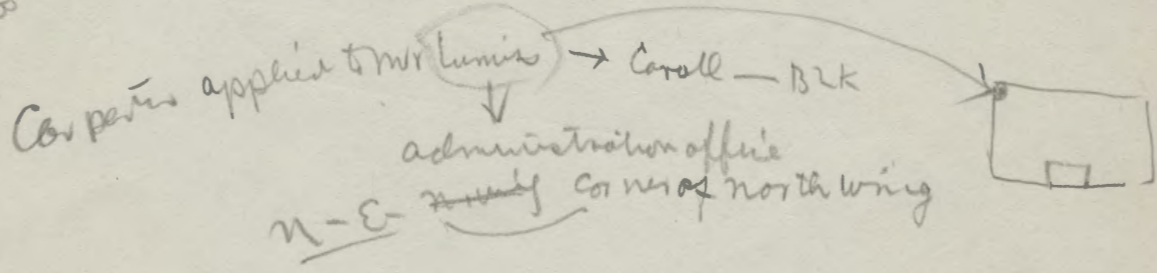 Carpenter applied to Mr Lumis → Caroll — BLK
administration office
N-E- corner of north wing